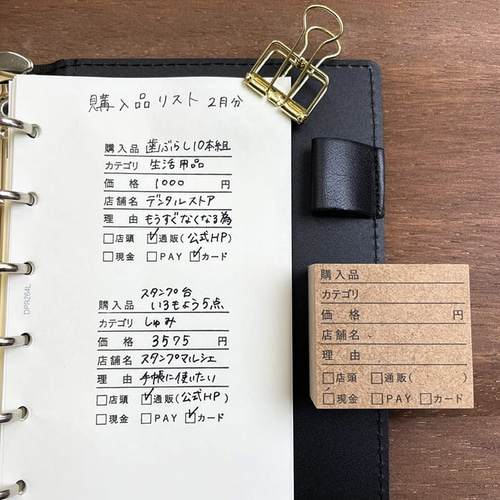 購入品リスト 2月分
購入品 歯ぶらし10本組
カテゴリ 生活用品
価格 1000 円
店舗名 デンタルストア
理由 もうすぐなくなる為
□店頭 ☑通販(公式HP)
□現金 □PAY ☑カード
スタンプ台
購入品 いろもよう5点
カテゴリ しゅみ
価格 3575 円
店舗名 スタンプマルシェ
理由 手帳に使いたい
□店頭 ☑通販(公式HP)
□現金 □PAY ☑カード
DPR264L
購入品
カテゴリ
価格 円
店舗名
理由
□店頭 □通販( )
□現金 □PAY □カード